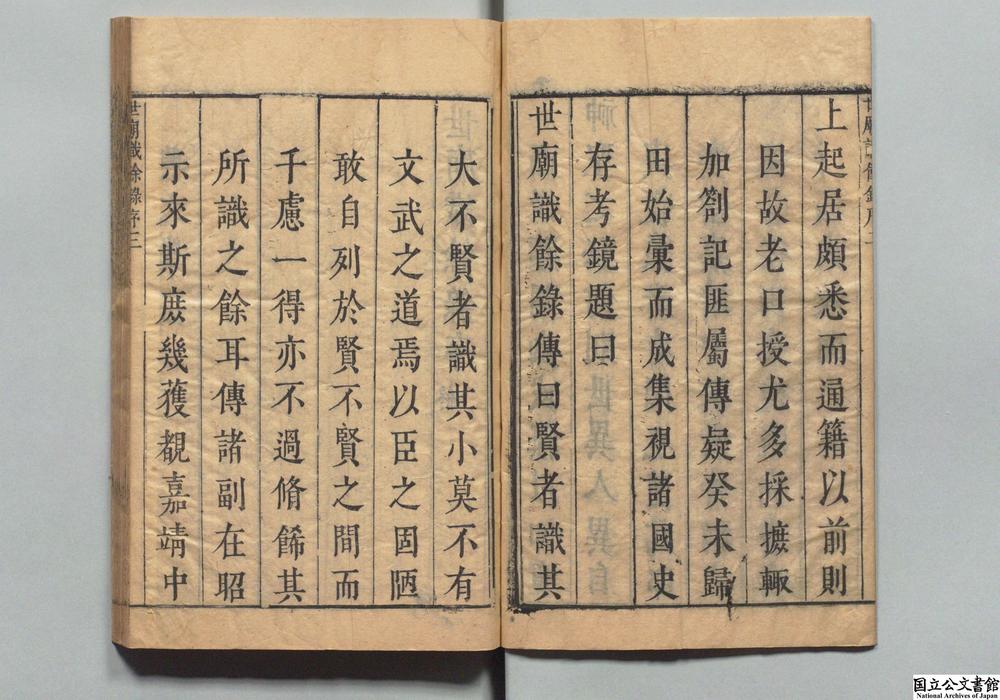 上起居頗悉而通籍以前則
因故老口授尤多採摭輒
加劄記匪屬傳疑癸未歸
田始彙而成集視諸國史
存考鏡題曰
世廟識餘錄傳曰賢者識其
大不賢者識其小莫不有
文武之道焉以臣之固陋
敢自列於賢不賢之間而
千慮一得亦不過脩餙其
所識之餘耳傳諸副在昭
示來斯庶幾獲覩嘉靖中
世廟識餘錄序三
国立公文書館
National Archives of Japan